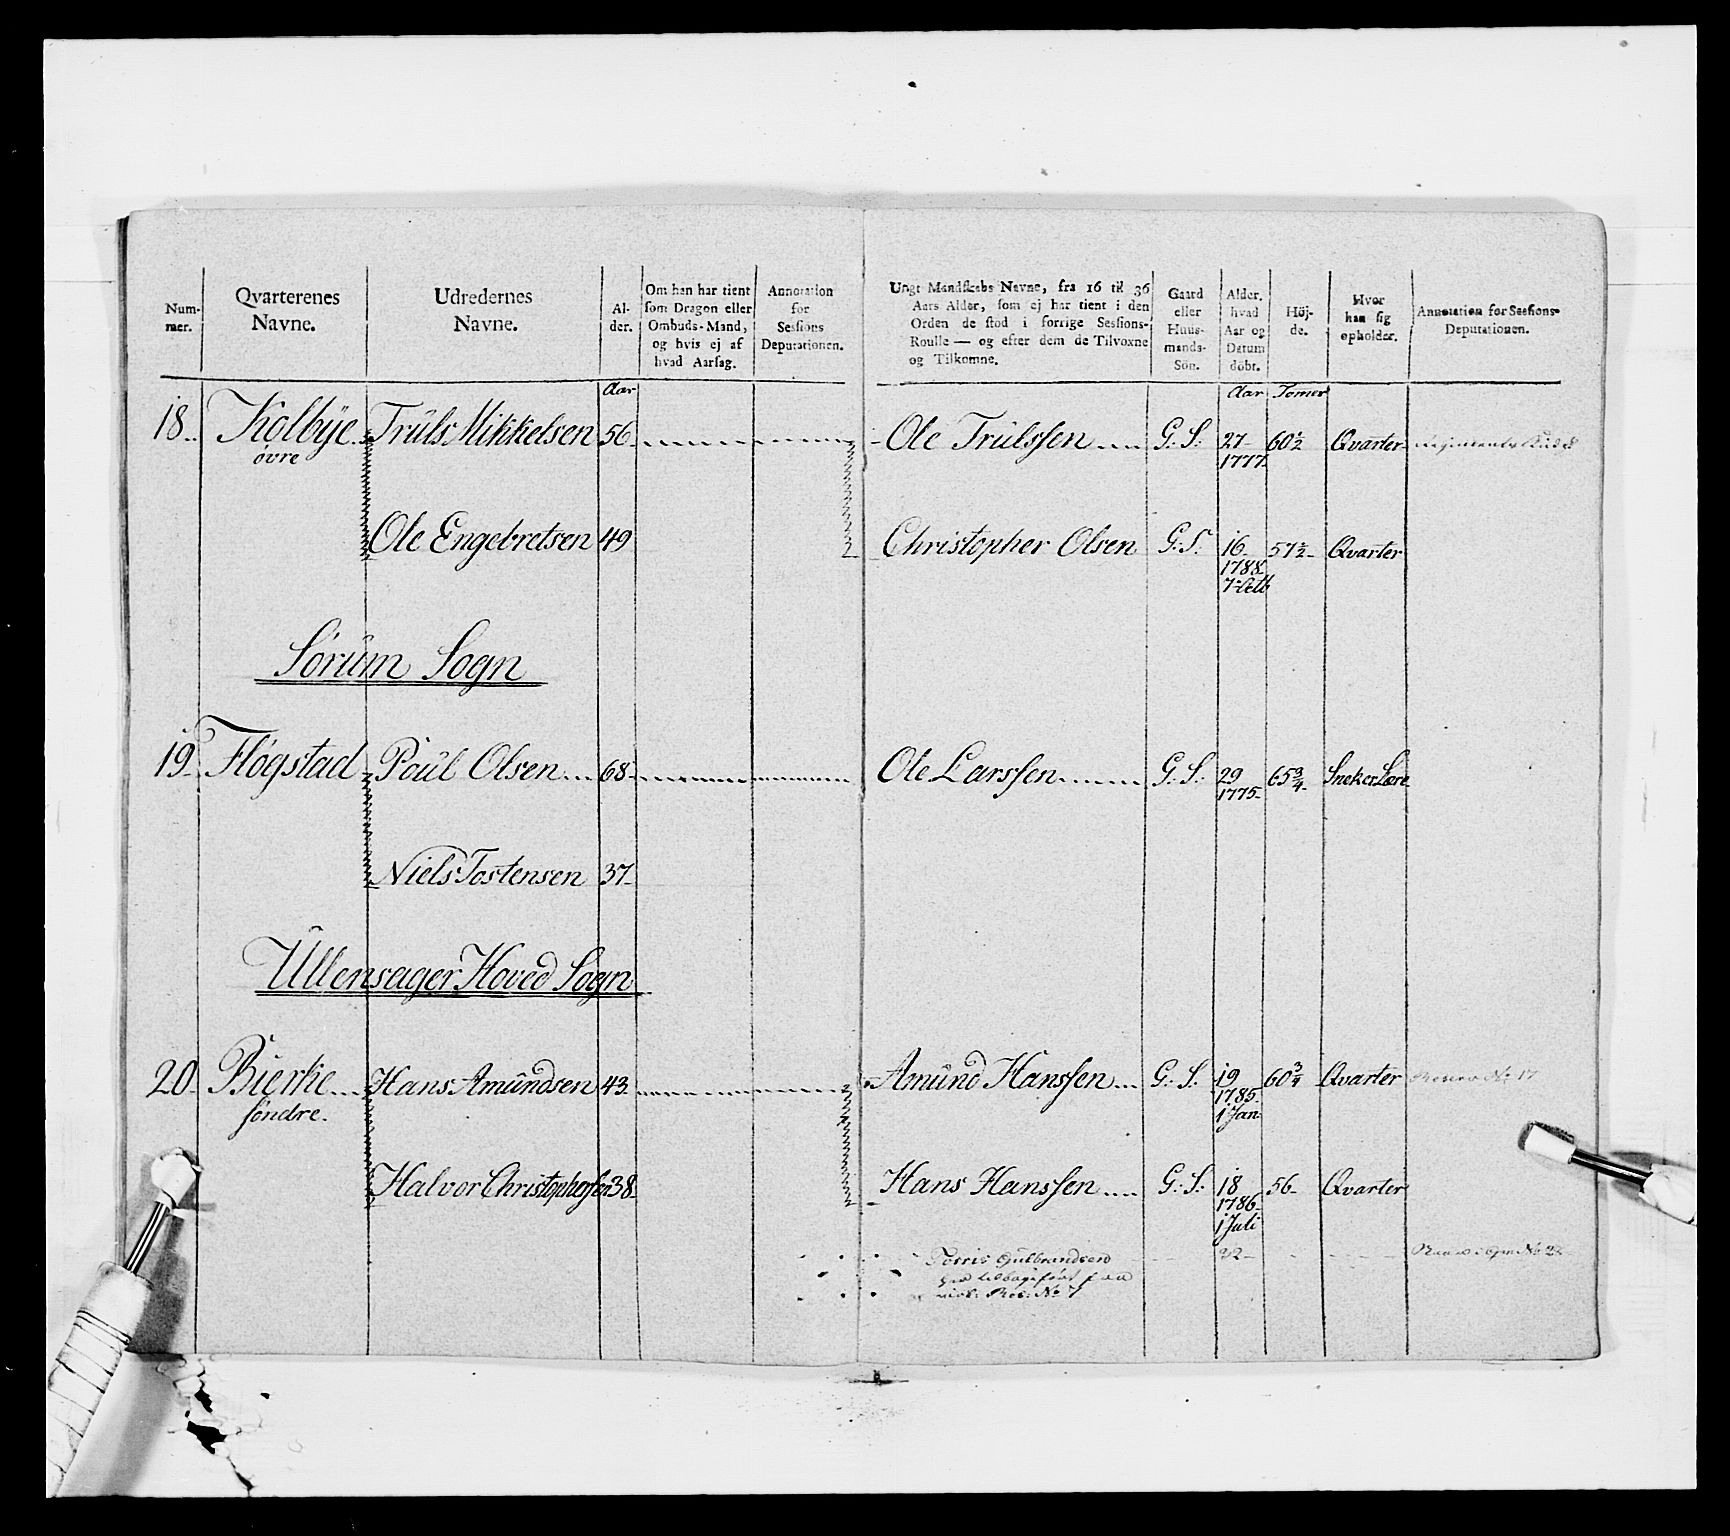 Num-
mer.
Qvarterenes
Navne.
Udredernes
Navne.
Al-
der.
Om han har tient
som Dragon eller
Ombuds-Mand,
og hvis ej af
hvad Aarsag.
Annotation
for
Sessions
Deputationen.
Ungt Mandskabs Navne, fra 16 til 36
Aars Alder, som ej har tient i den
Orden de stod i forrige Sessions-
Roulle — og efter dem de Tilvoxne
og Tilkomne.
Gaard
eller
Huus-
mands-
Søn.
Alder,
hvad
Aar og
Datum
døbt.
Höj-
de.
Hvor
han sig
opholder.
Annotation for Sessions-
Deputationen.
Aar
Aar Tomer
18. Kolbÿe Truls Mikkelsen 56 Ole Trulssen G. S. 27 60½ Qvarter
øvre 1777
Ole Engebretsen 49 Christopher Olsen G. S. 16 57½ Qvarter
1788
7 Octb
Sørum Sogn
19 Fløgstad Poul Olsen 68 Ole Larssen G. S. 29 65¾ Sneker Lære
1775
Niels Tostensen 37
Ullensager Hoved Sogn
20 Bierke Hans Amundsen 43 Amund Hanssen G. S. 19 60¾ Qvarter Reserv No 17
søndre. 1785
1 Jan
Halvor Christophersen 38 Hans Hanssen G. S. 18 56 Qvarter
1786
1 Juli
Gulbrandsen 32
No 7